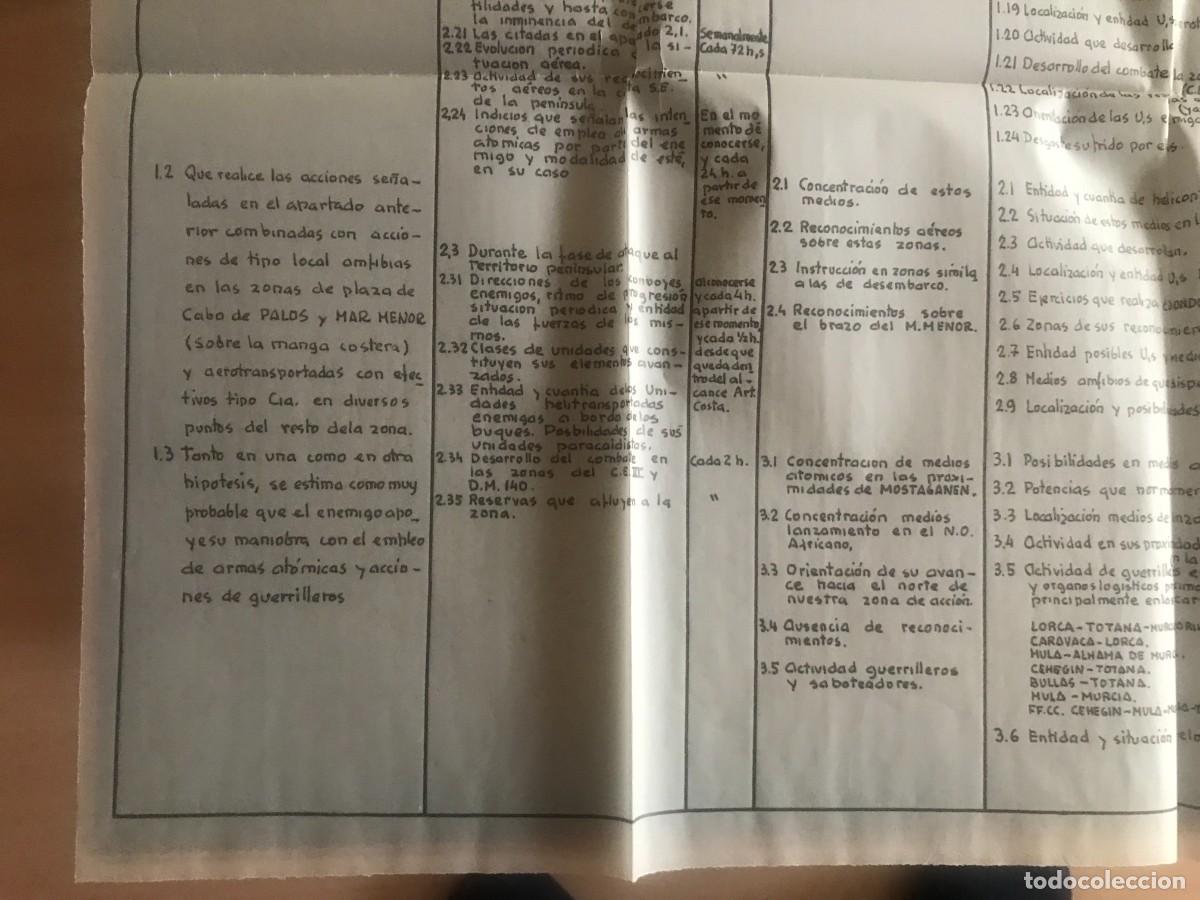 1.2 Que realice las acciones seña-
ladas en el apartado ante-
rior combinadas con accio-
nes de tipo local amfibias
en las zonas de plaza de
Cabo de PALOS y MAR MENOR
(sobre la manga costera)
y aerotransportadas con efec
tivos tipo Cia. en diversos
puntos del resto dela zona.
1.3 Tanto en una como en otra
hipotesis, se estima como muy
probable que el enemigo apo_
ye su maniobra con el empleo
de armas atómicas y accio-
nes de guerrilleros
tilidades y hasta
la inminencia del
2.21 Las citadas en el 2,1.
2.22 Evolucion periodica la si-
tuacion aérea.
2.23 Actividad de sus
tos aéreos en la S.E.
de la peninsula.
2,24 Indicios que señalan las inten_
ciones de empleo armas
atomicas por del ene
migo y modalidad de este,
en su caso
2,3 Durante la fase de ataque al
Territorio peninsular.
2.31 Direcciones de los convoyes
enemigos, ritmo de progresión
situacion periodica y entidad
de las fuerzas de los mis-
mos.
2.32 Clases de unidades que cons-
tituyen sus elementos avan-
zados.
2.33 Entidad y cuantia de los Uni-
dades helitransportadas
enemigas a bordo de los
buques. Posibilidades de sus
unidades paracaidistas.
2.34 Desarrollo del combate en
las zonas del C.E. III y
D.M. 140.
2.35 Reservas que afluyen a la
zona.
Semanalmente
Cada 72h,s
"
En el mo
mento de
conocerse,
y cada
24 h. a
partir de
ese momen
to.
al conocerse
y cada 4h.
apartir de
ese momento
y cada ½h.
desde que
queda den
tro del al-
cance Art.
Costa.
Cada 2 h.
"
2.1 Concentración de estos
medios.
2.2 Reconocimientos aéreos
sobre estas zonas.
2.3 Instrucción en zonas simila
a las de desembarco.
2.4 Reconocimientos sobre
el brazo del M.MENOR.
3.1 Concentracion de medios
atomicos en las proxi-
midades de MOSTAGANEN.
3.2 Concentración medios
lanzamiento en el N.O.
Africano,
3.3 Orientación de su avan-
ce hacia el norte de
nuestra zona de acción.
3.4 Ausencia de reconoci-
mientos.
3.5 Actividad guerrilleros
y saboteadores.
1.19 Localización y entidad U,s
1.20 Actividad que desarrolla
1.21 Desarrollo del combate la
1.22 Localización de las
1.23 Orientacion de las U,s
1.24 Desgaste sufrido por
2.1 Entidad y cuantia de
2.2 Situación de estos medios en
2.3 Actividad que desarrollan.
2.4 Localización y entidad U,s
2.5 Ejercicios que realiza
2.6 Zonas de sus
2.7 Entidad posibles U,s
2.8 Medios amfibios de
2.9 Localización y
3.1 Posibilidades en
3.2 Potencias que
3.3 Localización medios de
3.4 Actividad en sus
3.5 Actividad de guerrillas
y organos logísticos
principalmente en
LORCA-TOTANA-
CARAVACA-LORCA.
MULA-ALHAMA DE MUR.
CEHEGIN-TOTANA.
BULLAS-TOTANA.
MULA-MURCIA.
FF.CC. CEHEGIN-MULA-
3.6 Entidad y situación
todocoleccion